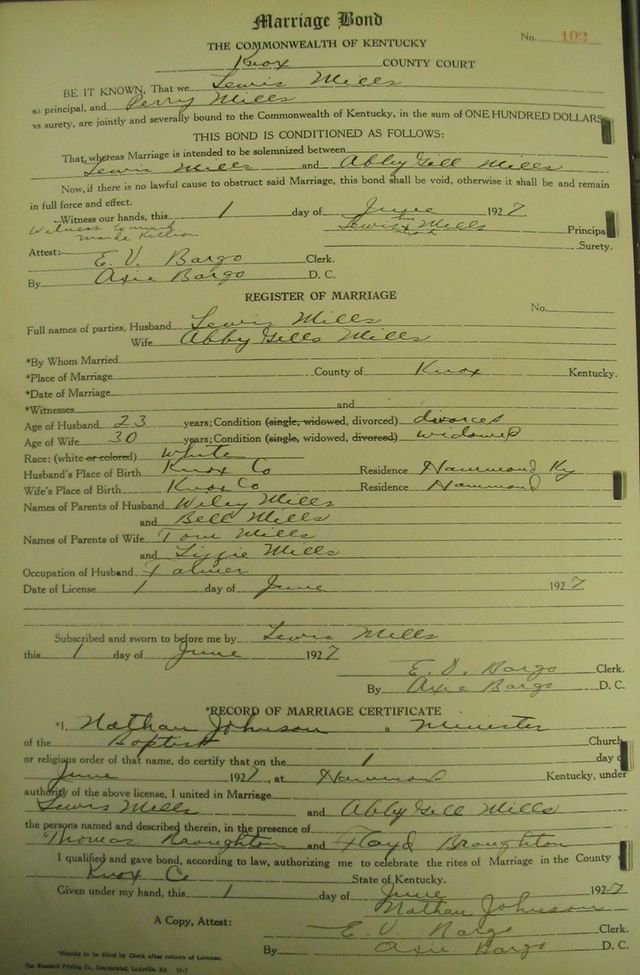 Marriage Bond
No. 102
THE COMMONWEALTH OF KENTUCKY
Knox COUNTY COURT
BE IT KNOWN, That we Lewis Mills
as principal, and Perry Mills
as surety, are jointly and severally bound to the Commonwealth of Kentucky, in the sum of ONE HUNDRED DOLLARS
THIS BOND IS CONDITIONED AS FOLLOWS:
That whereas Marriage is intended to be solemnized between
Lewis Mills and Abby Gell Mills
Now, if there is no lawful cause to obstruct said Marriage, this bond shall be void, otherwise it shall be and remain
in full force and effect.
Witness our hands, this 1 day of June 1927
Witness to mark Lewis his x mark Mills Principal
Killion Surety.
Attest: E. V. Bargo Clerk.
By Axie Bargo D. C.
REGISTER OF MARRIAGE
No.
Full names of parties, Husband Lewis Mills
Wife Abby Gells Mills
*By Whom Married
*Place of Marriage County of Knox Kentucky.
*Date of Marriage
*Witnesses and
Age of Husband 23 years; Condition (single, widowed, divorced) divorced
Age of Wife 30 years; Condition (single, widowed, divorced) widowed
Race: (white or colored) white
Husband's Place of Birth Knox Co Residence Hammond Ky
Wife's Place of Birth Knox Co Residence Hammond
Names of Parents of Husband Wiley Mills
and Bell Mills
Names of Parents of Wife Tom Mills
and Lizzie Mills
Occupation of Husband Farmer
Date of License 1 day of June 1927
Subscribed and sworn to before me by Lewis Mills
this 1 day of June 1927
E. V. Bargo Clerk.
By Axie Bargo D. C.
*RECORD OF MARRIAGE CERTIFICATE
*I, Nathan Johnson a Minister
of the Baptist Church
or religious order of that name, do certify that on the 1 day
June 1927, at Hammond Kentucky, under
authority of the above license, I united in Marriage
Lewis Mills and Abby Gell Mills
the persons named and described therein, in the presence of
Thomas Broughton and Floyd Broughton
I qualified and gave bond, according to law, authorizing me to celebrate the rites of Marriage in the County
Knox Co State of Kentucky.
Given under my hand, this 1 day of June 1927
Nathan Johnson
A Copy, Attest: E. V. Bargo Clerk.
By Axie Bargo D. C.
*Blanks to be filled by Clerk after return of License.
The Standard Printing Co., Incorporated, Louisville, Ky.